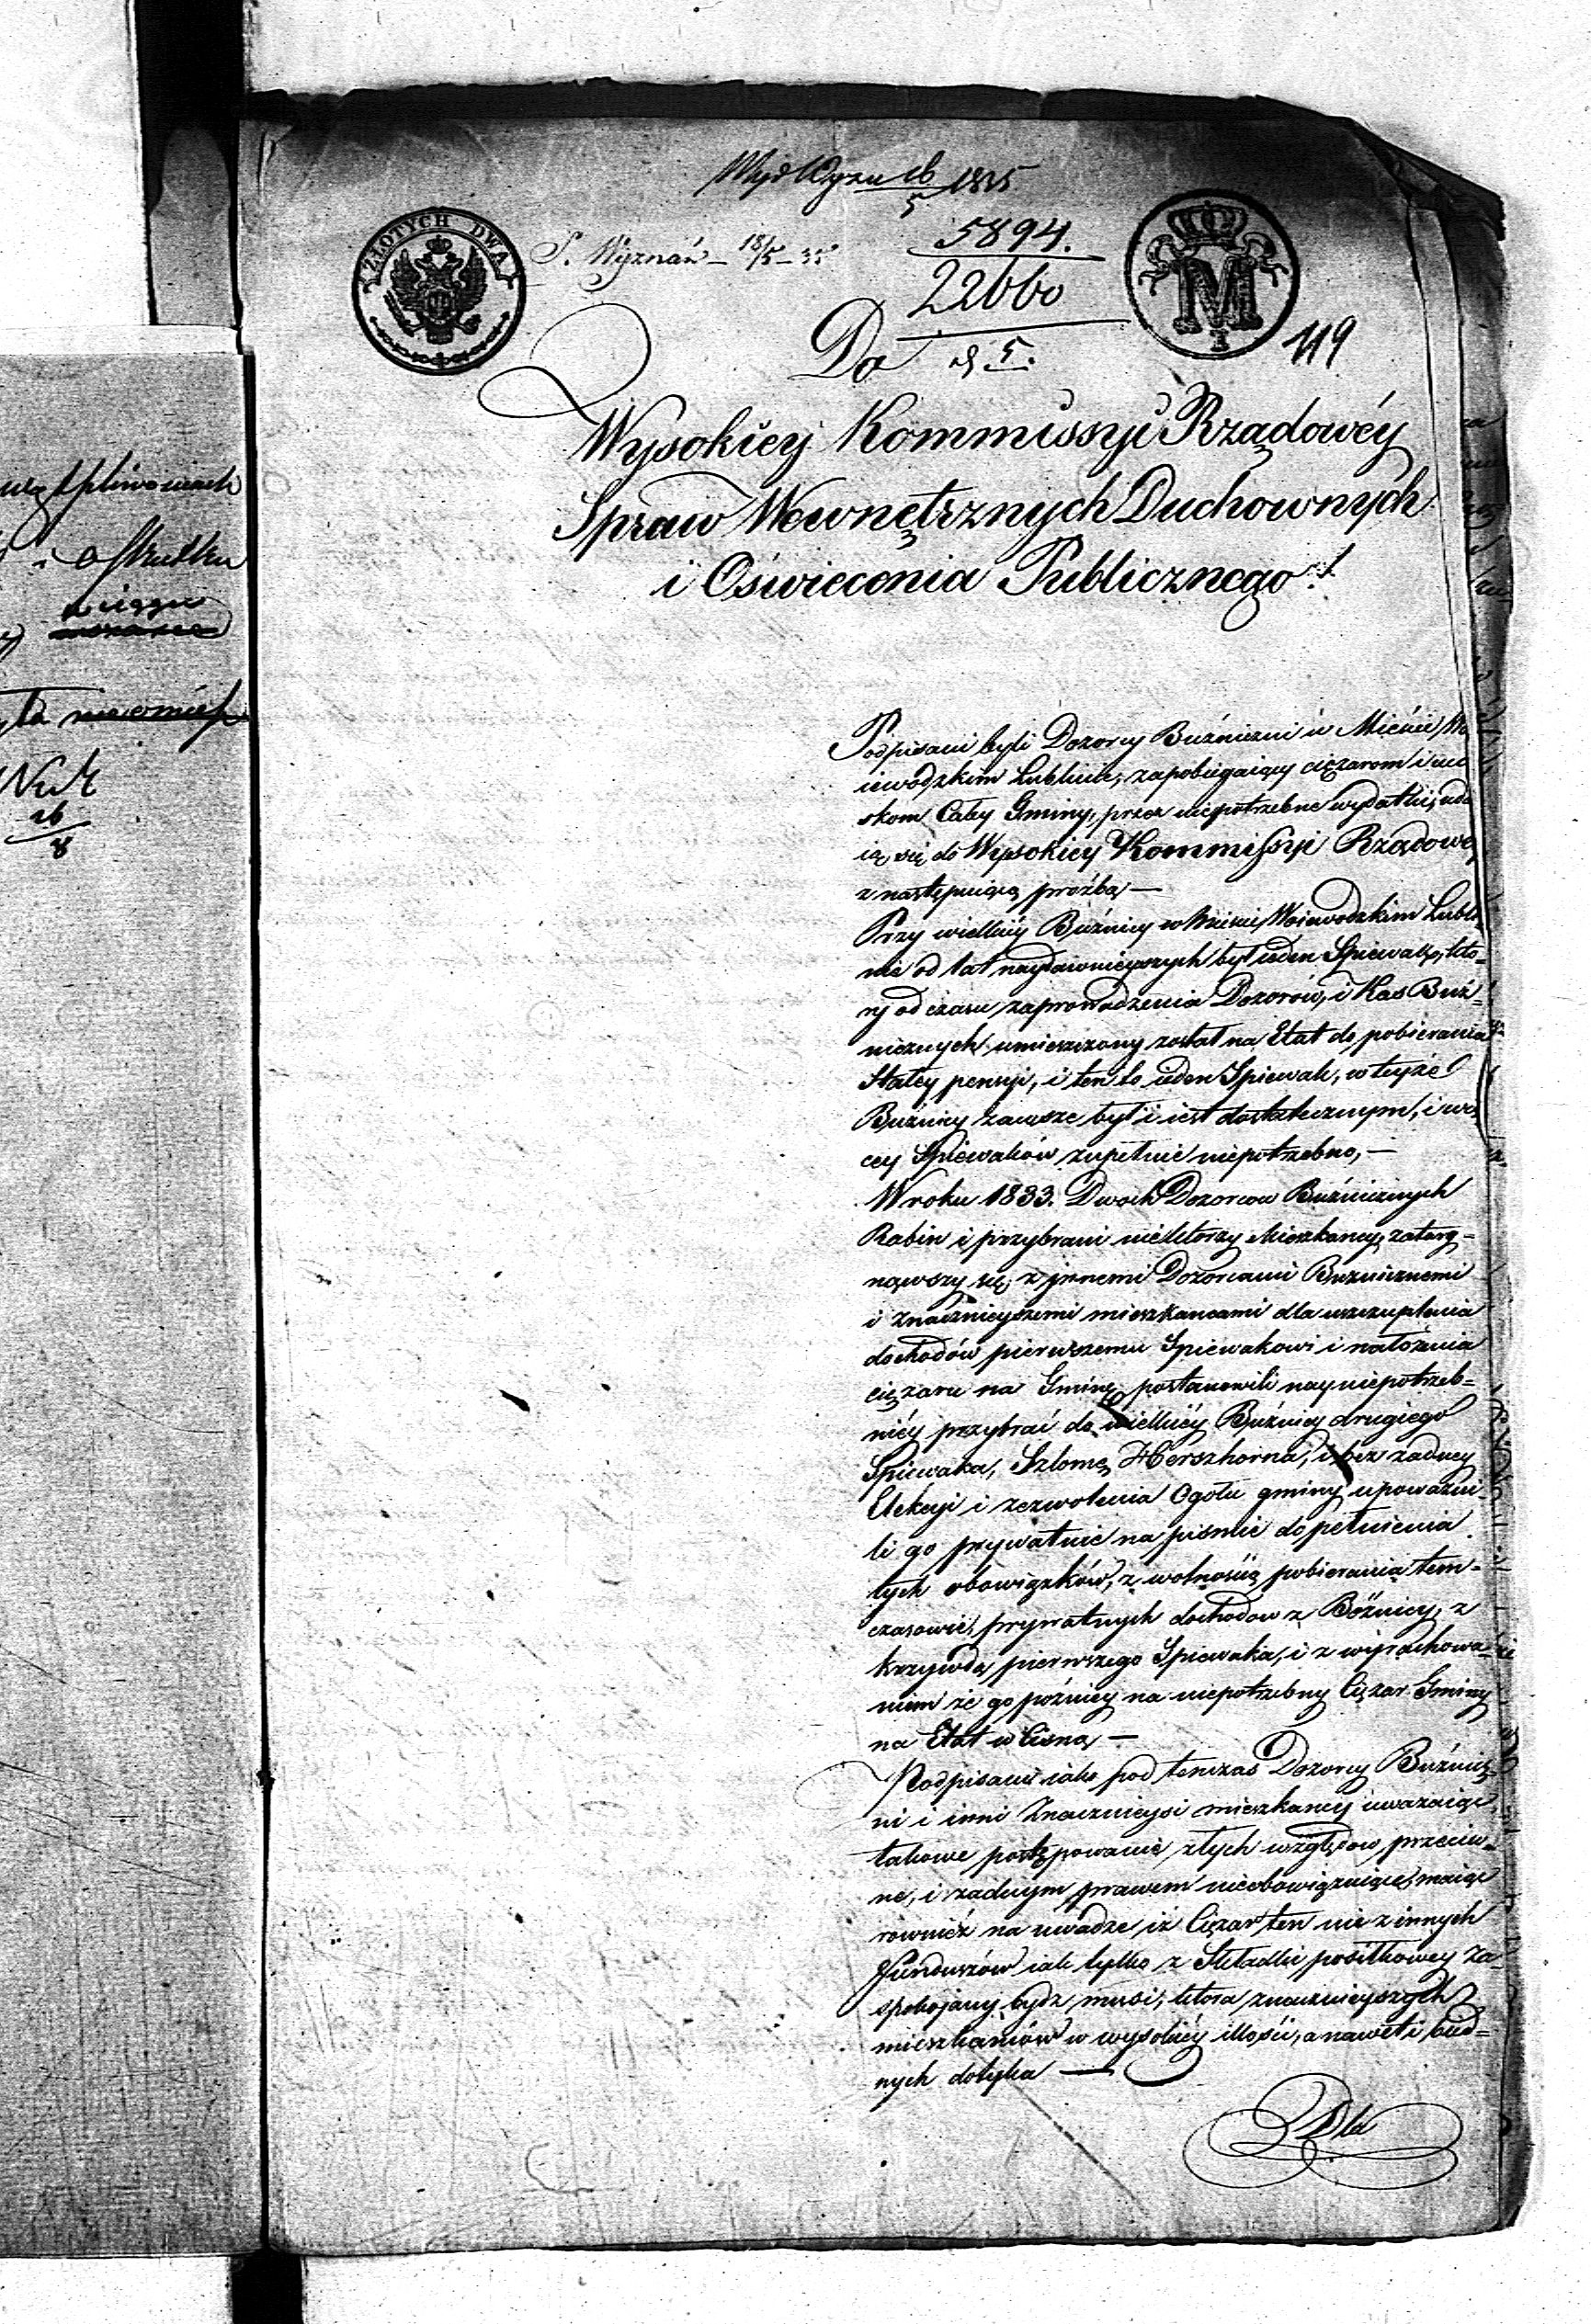 Wyd Wyzn 16/5 1835
ZŁOTYCH DWA
S. Wyznań – 18/5 – 35
5894.
22660
M
119
Do
5.
Wysokiey Kommissyi Rządowéy
Spraw Wewnętrznych Duchownych
i Oświecenia Publicznego!
Podpisani byli Dozorcy Bóżniczni w Mieście Wo
iewódzkim Lublinie, zapobiegaiący ciężarom i uci
skom Całey Gminy, przez niepotrzebne wydatki, uda
ią się do Wysokiey Kommissyi Rządowe
z następuiącą proźbą —
Przy wielkiéy Buźnicy w Mieście Woiewodzkim Lubli
nie od lat naydawnieyszych był ieden Spiewak, któ-
ry od czasu zaprowadzenia Dozorów, i Kas Buź-
nicznych umieszczony został na Etat do pobierania
Stałey pensyi, i ten to ieden Spiewak, w teyże
Buźnicy zawsze był i iest dostatecznym, i wię
cey Spiewaków zupełnie niepotrzebno, —
W roku 1833. Dwóch Dozorców Buźnicznych
Rabin i przybrani niektórzy Mieszkancy, zatarg-
nąwszy się z innemi Dozorcami Buznicznemi
i znacznieyszemi mieszkancami dla uszczuplenia
dochodów pierwszemu Spiewakowi i nałożenia
ciężaru na Gminę, postanowili nayniepotrzeb-
niéy przybrać do wielkiéy Buźnicy drugiego
Spiewaka, Szlomę Herszhorna, i bez żadney
Elekcyi i zezwolenia Ogółu gminy upoważni-
li go prywatnie na pismie do pełnienia
tych obowiązków, z wolnością pobierania tem-
czasowie, prywatnych dochodów z Bóżnicy, z
krzywdą pierwszego Spiewaka, i z wyrachowa-
niem że go poźniey na niepotrzebny Ciężar Gminy
na Etat wcisną —
Podpisani iako pod tenczas Dozorcy Buźnicz-
ni i inni Znacznieysi mieszkancy uważaiąc
takowe postępowanie, z tych względów, przeciw-
ne, i żadnym prawem nieobowiązuiące, maiąc
rownież na uwadze iż Ciężar ten nie z innych
Funduszów iak tylko z Składki posiłkowey za-
spokojany bydz musi, która znacznieyszych
mieszkańców w wysokiéy illości, a nawet i bied-
nych dotyka —
Dla